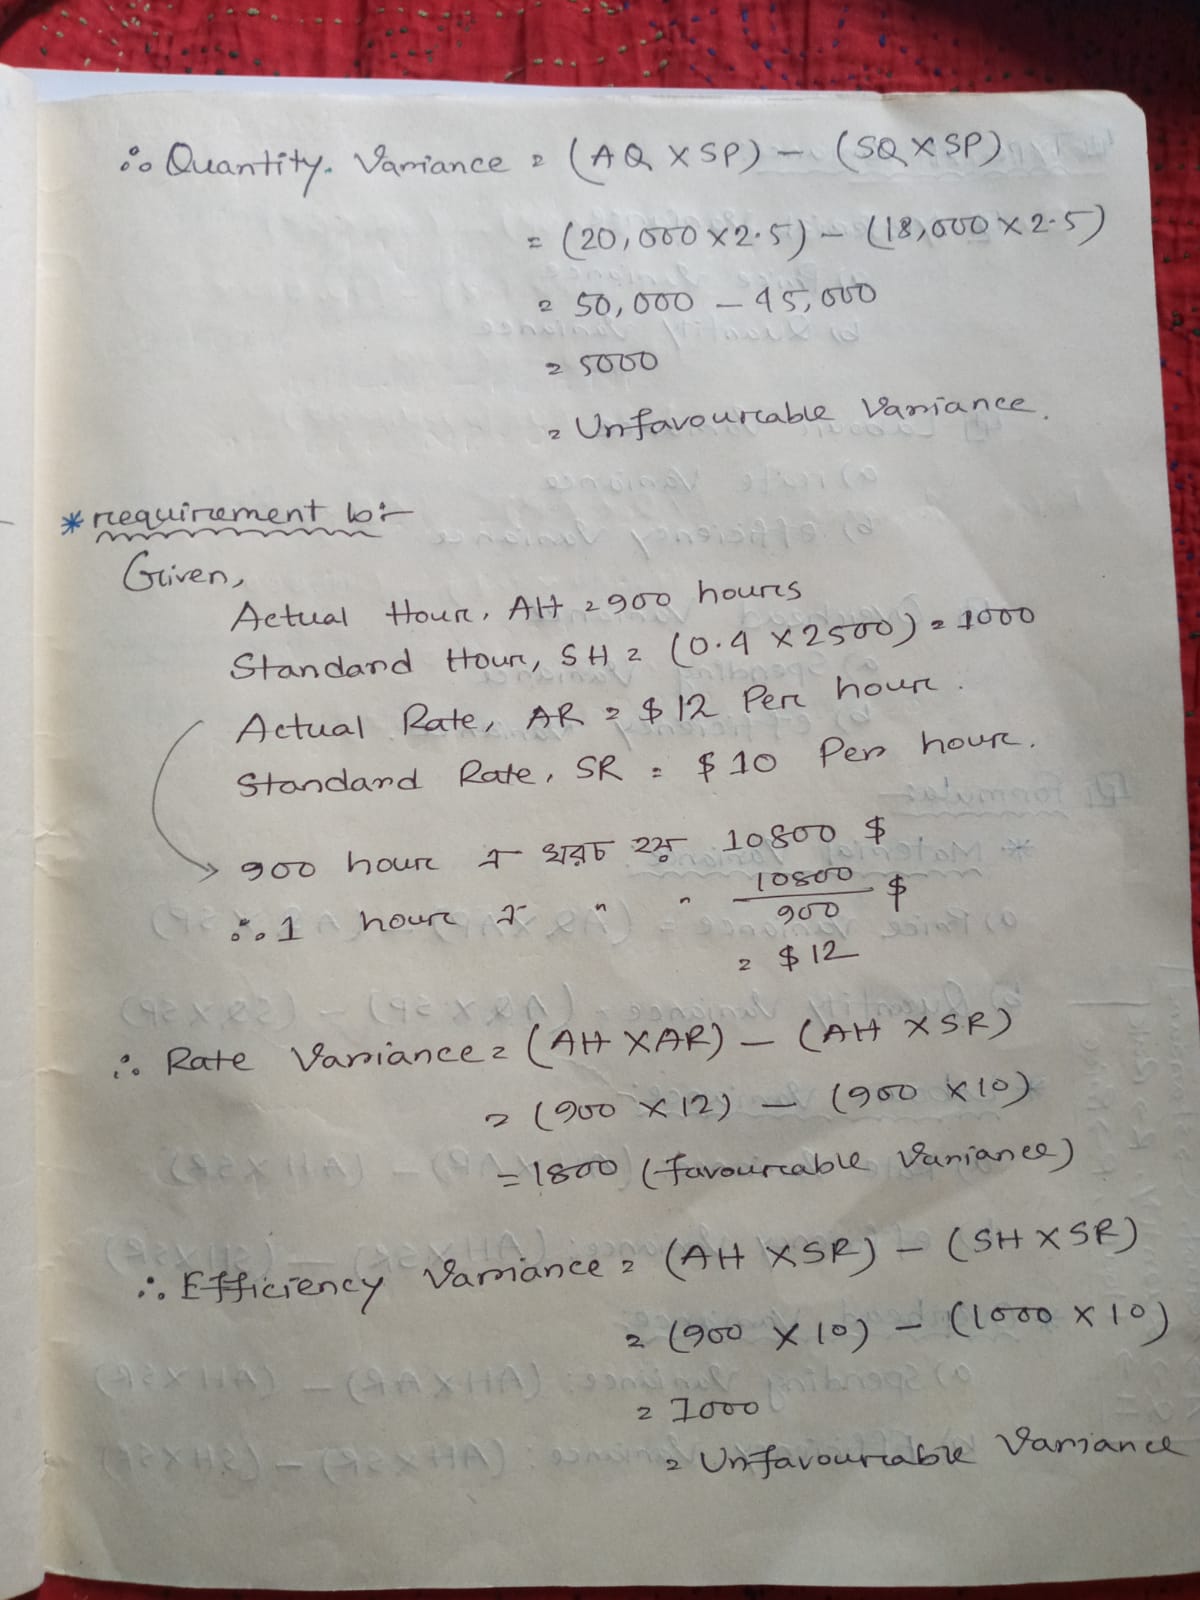 ∴ Quantity. Variance = (AQ X SP) – (SQ X SP)
= (20,000 X 2.5) – (18,000 X 2.5)
= 50,000 – 45,000
= 5000
= Unfavourable Variance.
* requirement b:-
Given,
Actual Hour, AH = 900 hours
Standard Hour, SH = (0.4 X 2500) = 1000
Actual Rate, AR = $12 Per hour.
Standard Rate, SR = $10 Per hour.
900 hour এ খরচ হয় 10800 $
∴ 1 hour এ " " 10800/900 $
= $12
∴ Rate Variance = (AH X AR) – (AH X SR)
= (900 X 12) – (900 X 10)
= 1800 (favourable Variance)
∴ Efficiency Variance = (AH X SR) – (SH X SR)
= (900 X 10) – (1000 X 10)
= 1000
= Unfavourable Variance